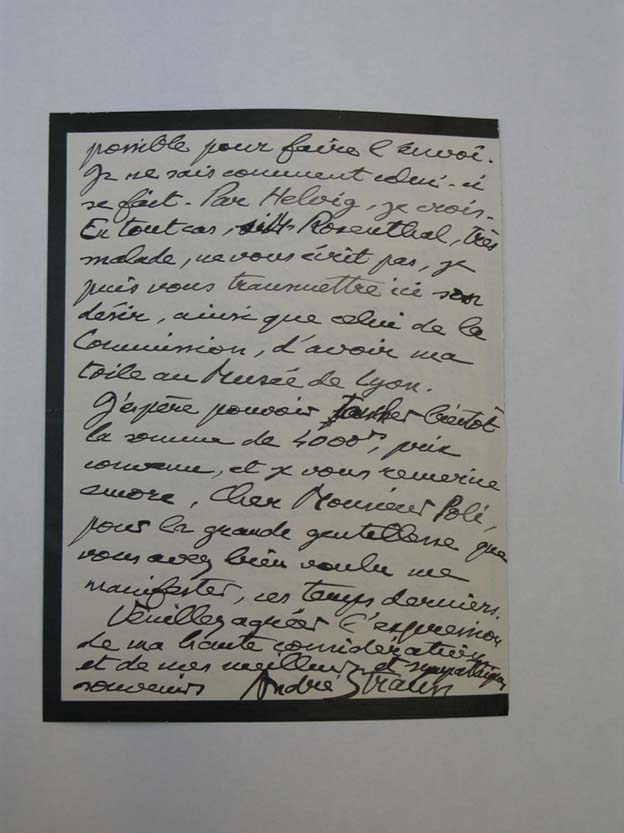 possible pour faire l'envoi.
Je ne sais comment celui-ci
se fait - Par Helvig, je crois -
En tout cas, Rosenthal, très
malade, ne vous écrit pas, je
puis vous transmettre ici son
désir, ainsi que celui de la
Commission, d'avoir ma
toile au Musée de Lyon.
J'espère pouvoir toucher bientôt
la somme de 4000 frs, prix
convenu, et je vous remercie
encore, Cher Monsieur
pour la grande gentillesse que
vous avez bien voulu me
manifester, ces temps derniers.
Veuillez agréer l'expression
de ma haute considération
et de mes meilleurs et sympathiques
souvenirs André